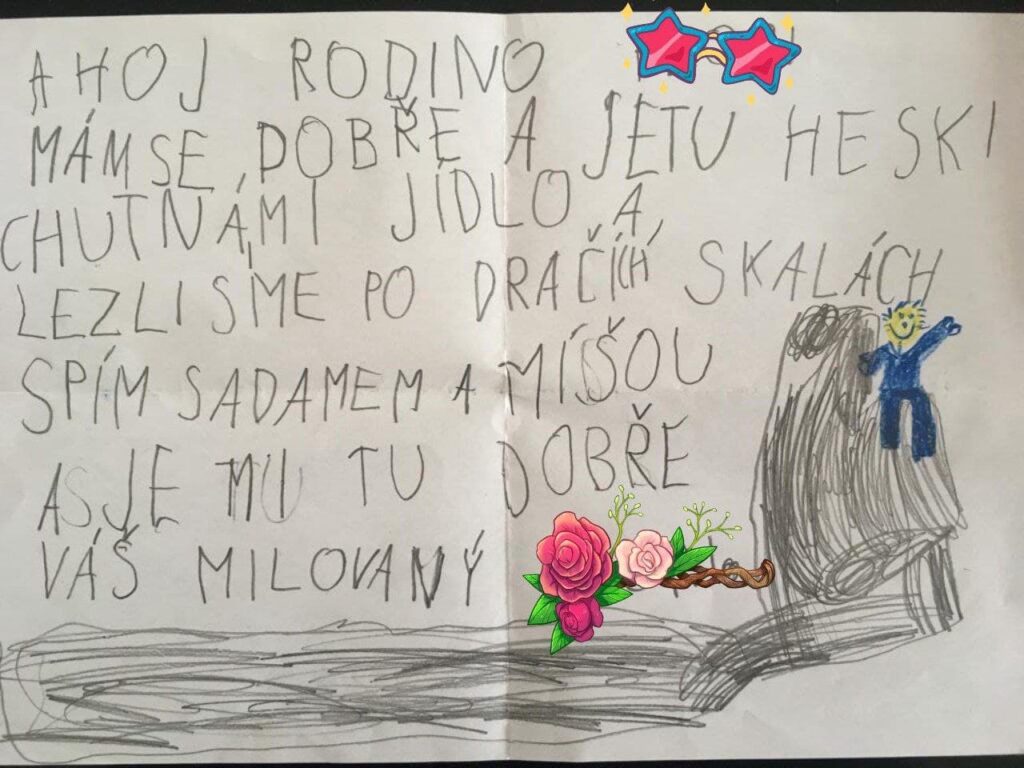 AHOJ RODINO
MÁM SE DOBŘE A JETU HESKI
CHUTNÁ MI JÍDLO A
LEZLI SME PO DRAČÍCH SKALÁCH
SPÍM SADAMEM A MÍŠOU
A JE MU TU DOBŘE
VÁŠ MILOVANÝ